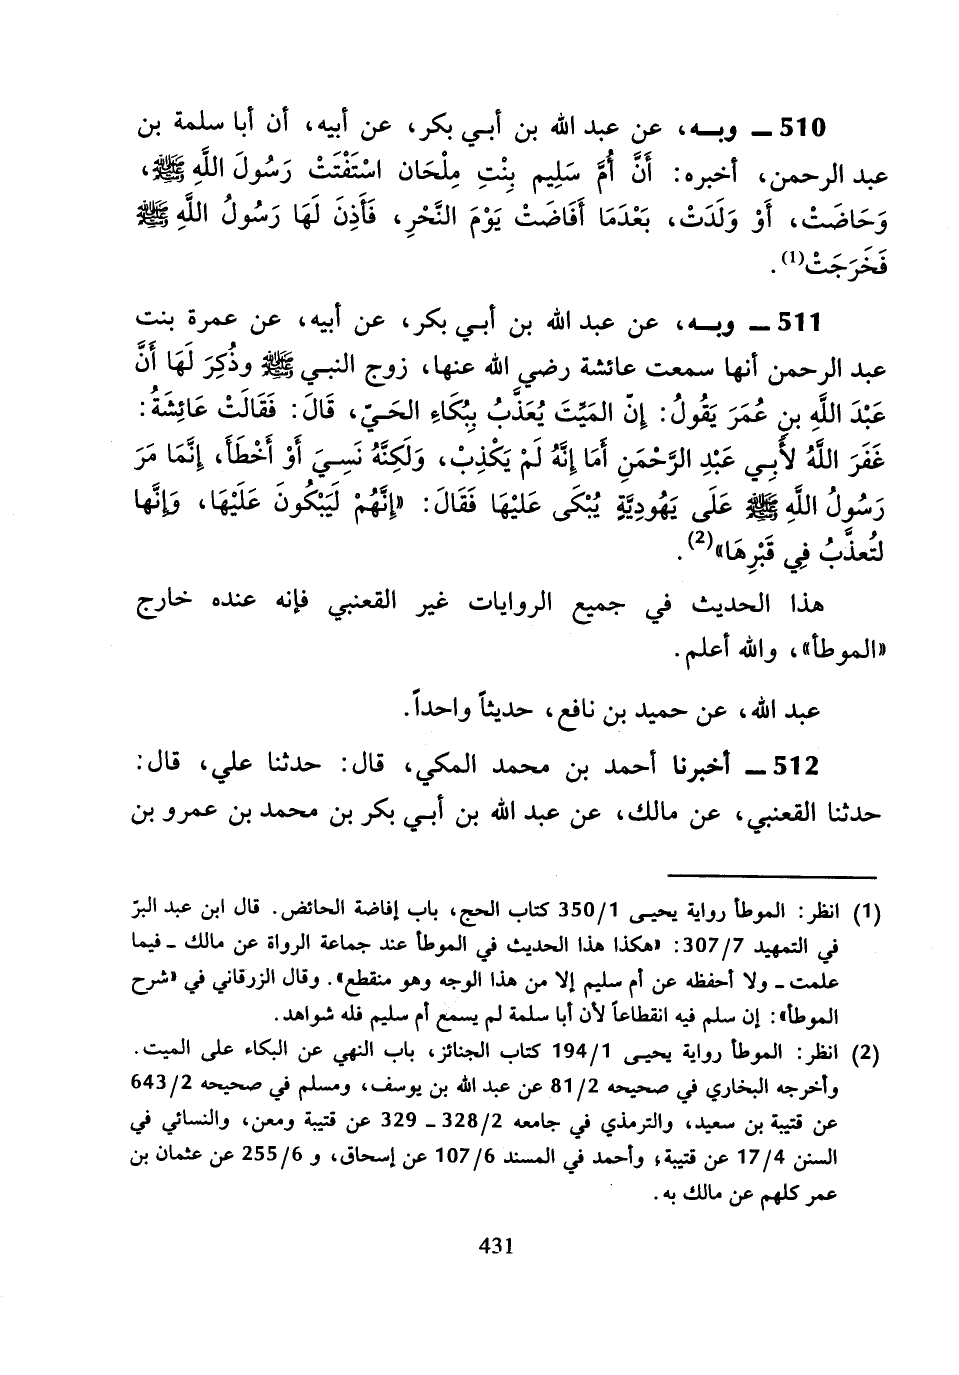 510 ـ وبـه، عن عبد الله بن أبـي بكر، عن أبيه، أن أبا سلمة بن
عبد الرحمن، أخبره: أَنَّ أُمَّ سَلِيم بِنْتِ مِلْحَان اسْتَفْتَتْ رَسُولَ اللَّهِ ﷺ،
وَحَاضَتْ، أَوْ وَلَدَتْ، بَعْدَمَا أَفَاضَتْ يَوْمَ النَّحْرِ، فَأَذِنَ لَهَا رَسُولُ اللَّهِ ﷺ
فَخَرَجَتْ(1).
511 ـ وبـه، عن عبد الله بن أبـي بكر، عن أبيه، عن عمرة بنت
عبد الرحمن أنها سمعت عائشة رضي الله عنها، زوج النبـي ﷺ وذُكِرَ لَهَا أَنَّ
عَبْدَ اللَّهِ بنِ عُمَرَ يَقُولُ: إِنّ المَيِّتَ يُعَذَّبُ بِبُكَاءِ الحَيّ، قَالَ: فَقَالَتْ عَائِشَةُ:
غَفَرَ اللَّهُ لأَبِـي عَبْدِ الرَّحْمَنِ أَمَا إِنَّهُ لَمْ يَكْذِبْ، وَلَكِنَّهُ نَسِـيَ أَوْ أَخْطَأَ، إِنَّمَا مَرَ
رَسُولُ اللَّهِ ﷺ عَلَى يَهُودِيَّةٍ يُبْكَى عَلَيْهَا فَقَالَ: «إِنَّهُمْ لَيَبْكُونَ عَلَيْهَا، وَإِنَّها
لَتُعذَّبُ فِي قَبْرِهَا»(2).
هذا الحديث في جميع الروايات غير القعنبي فإنه عنده خارج
«الموطأ»، والله أعلم.
عبد الله، عن حميد بن نافع، حديثاً واحداً.
512 ـ أخبرنا أحمد بن محمد المكي، قال: حدثنا علي، قال:
حدثنا القعنبي، عن مالك، عن عبد الله بن أبـي بكر بن محمد بن عمرو بن
(1) انظر: الموطأ رواية يحيـى 350/1 كتاب الحج، باب إفاضة الحائض. قال ابن عبد البرّ
في التمهيد 307/7: «هكذا هذا الحديث في الموطأ عند جماعة الرواة عن مالك ـ فيما
علمت ـ ولا أحفظه عن أم سليم إلا من هذا الوجه وهو منقطع». وقال الزرقاني في «شرح
الموطأ»: إن سلم فيه انقطاعاً لأن أبا سلمة لم يسمع أم سليم فله شواهد.
(2) انظر: الموطأ رواية يحيـى 194/1 كتاب الجنائز، باب النهي عن البكاء على الميت.
وأخرجه البخاري في صحيحه 81/2 عن عبد الله بن يوسف، ومسلم في صحيحه 643/2
عن قتيبة بن سعيد، والترمذي في جامعه 328/2 ـ 329 عن قتيبة ومعن، والنسائي في
السنن 17/4 عن قتيبة، وأحمد في المسند 107/6 عن إسحاق، و 255/6 عن عثمان بن
عمر كلهم عن مالك به.
431